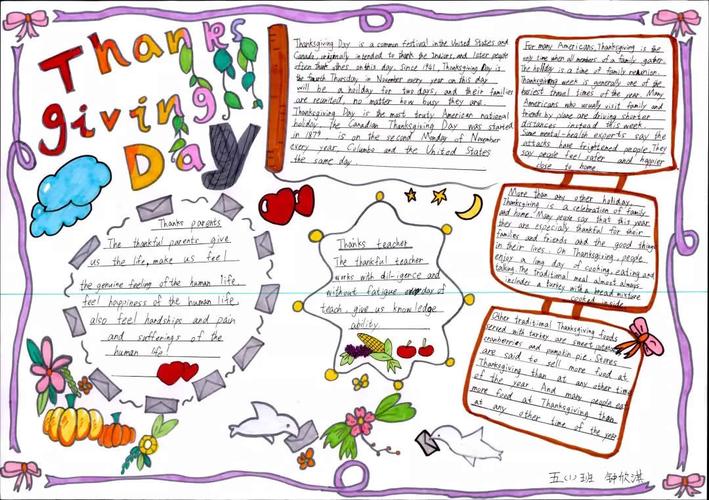 Thanks
giving
Day
Thanksgiving Day is a common festival in the United States and
Canada, originally intended to thank the Indians, and later people
often thank others on this day. Since 1941, Thanksgiving Day is
the fourth Thursday in November every year on this day
will be a holiday for two days, and their families
are reunited, no matter how busy they are.
Thanksgiving Day is the most truly American national
holiday. The Canadian Thanksgiving Day was started
in 1879 is on the second Monday of November
every year, Columbo and the United States
the same day.
For many Americans, Thanksgiving is the
only time when all members of a family gather.
The holiday is a time of family reunion.
Thanksgiving week is generally one of the
busiest travel times of the year. Many
Americans who usually visit family and
friends by plane are driving shorter
distances instead this week.
Some mental-health experts say the
attacks have frightened people. They
say people feel safer and happier
close to home.
More than any other holiday,
Thanksgiving is a celebration of family
and home. Many people say that this year
they are especially thankful for their
families and friends and the good things
in their lives. On Thanksgiving, people
enjoy a long day of cooking, eating and
talking. The traditional meal almost always
includes a turkey with a bread mixture
cooked inside.
Other traditional Thanksgiving foods
served with turkey are sweet potatoes,
cranberries and pumpkin pie. Stores
are said to sell more food at
Thanksgiving than at any other time
of the year. And many people eat
more food at Thanksgiving than
at any other time of the year
Thanks parents
The thankful parents give
us the life, make us feel
the genuine feeling of the human life,
feel happiness of the human life,
also feel hardships and pain
and sufferings of the
human life!
Thanks teacher
The thankful teacher
works with dil-igence and
without fatigue day of
teach, give us knowledge
ability.
五(1)班 钟欣淇